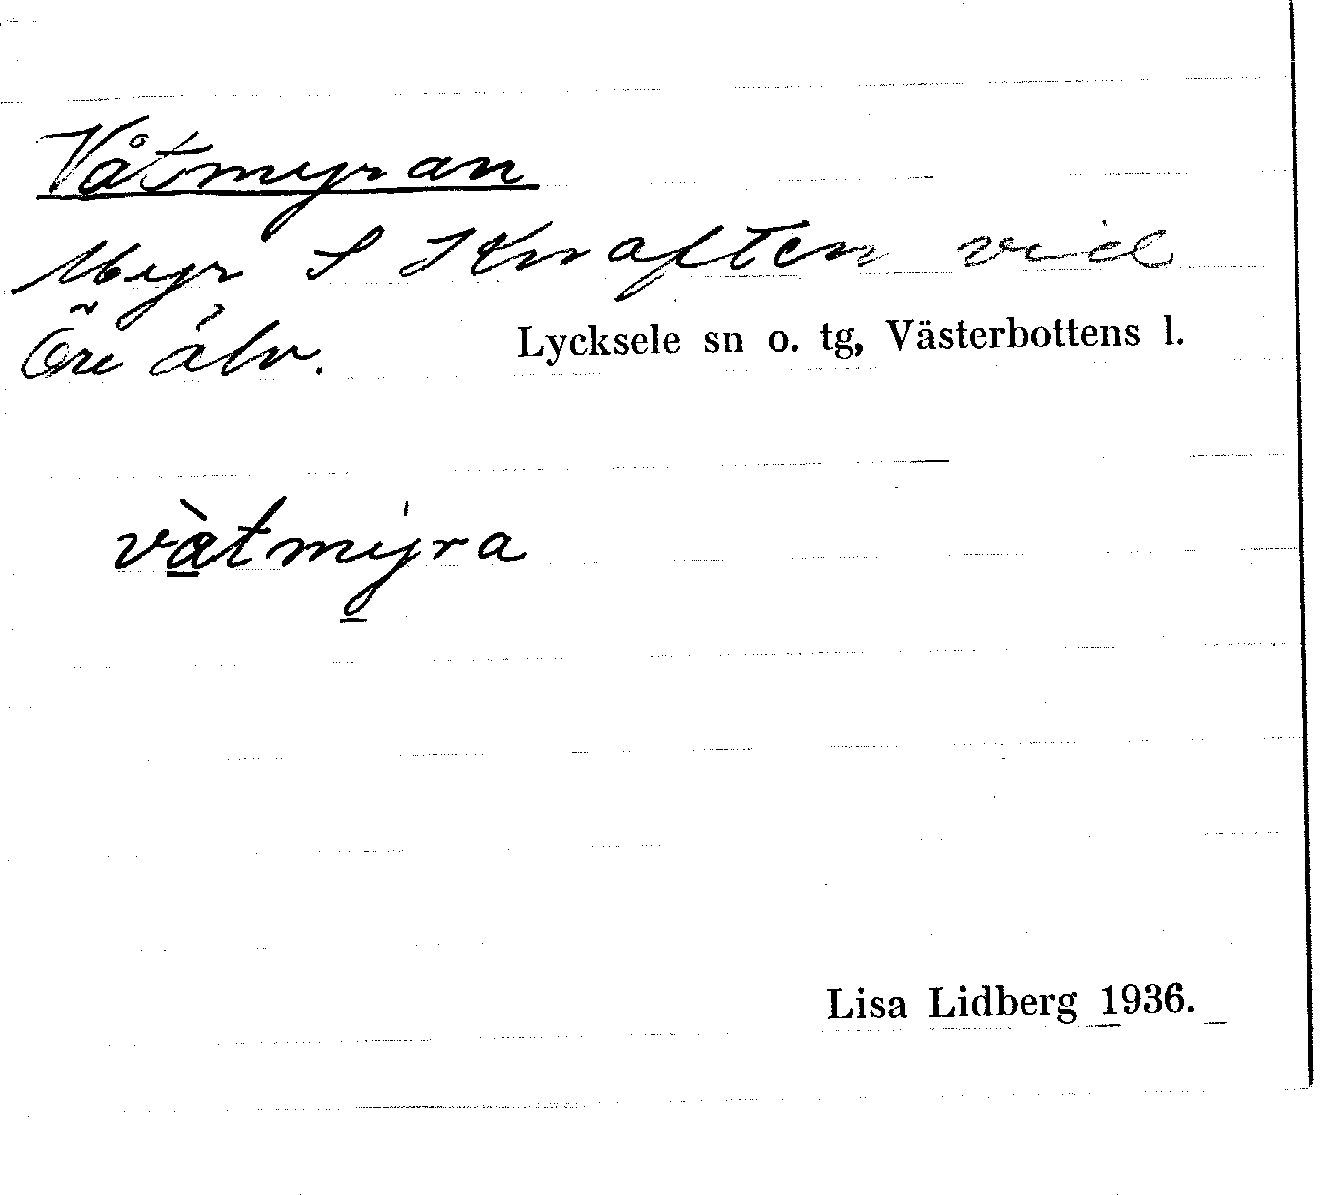 Våtmyran
Myr S Knaften vid
Öre älv.
Lycksele sn o. tg, Västerbottens l.
vàtmýra
Lisa Lidberg 1936.